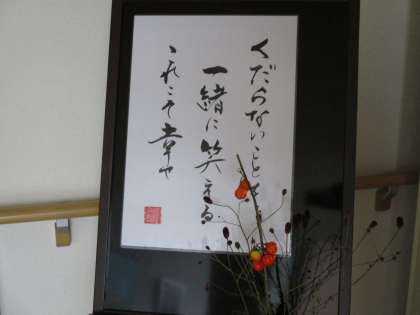 くだらないことを
一緒に笑える
これこそ幸せ